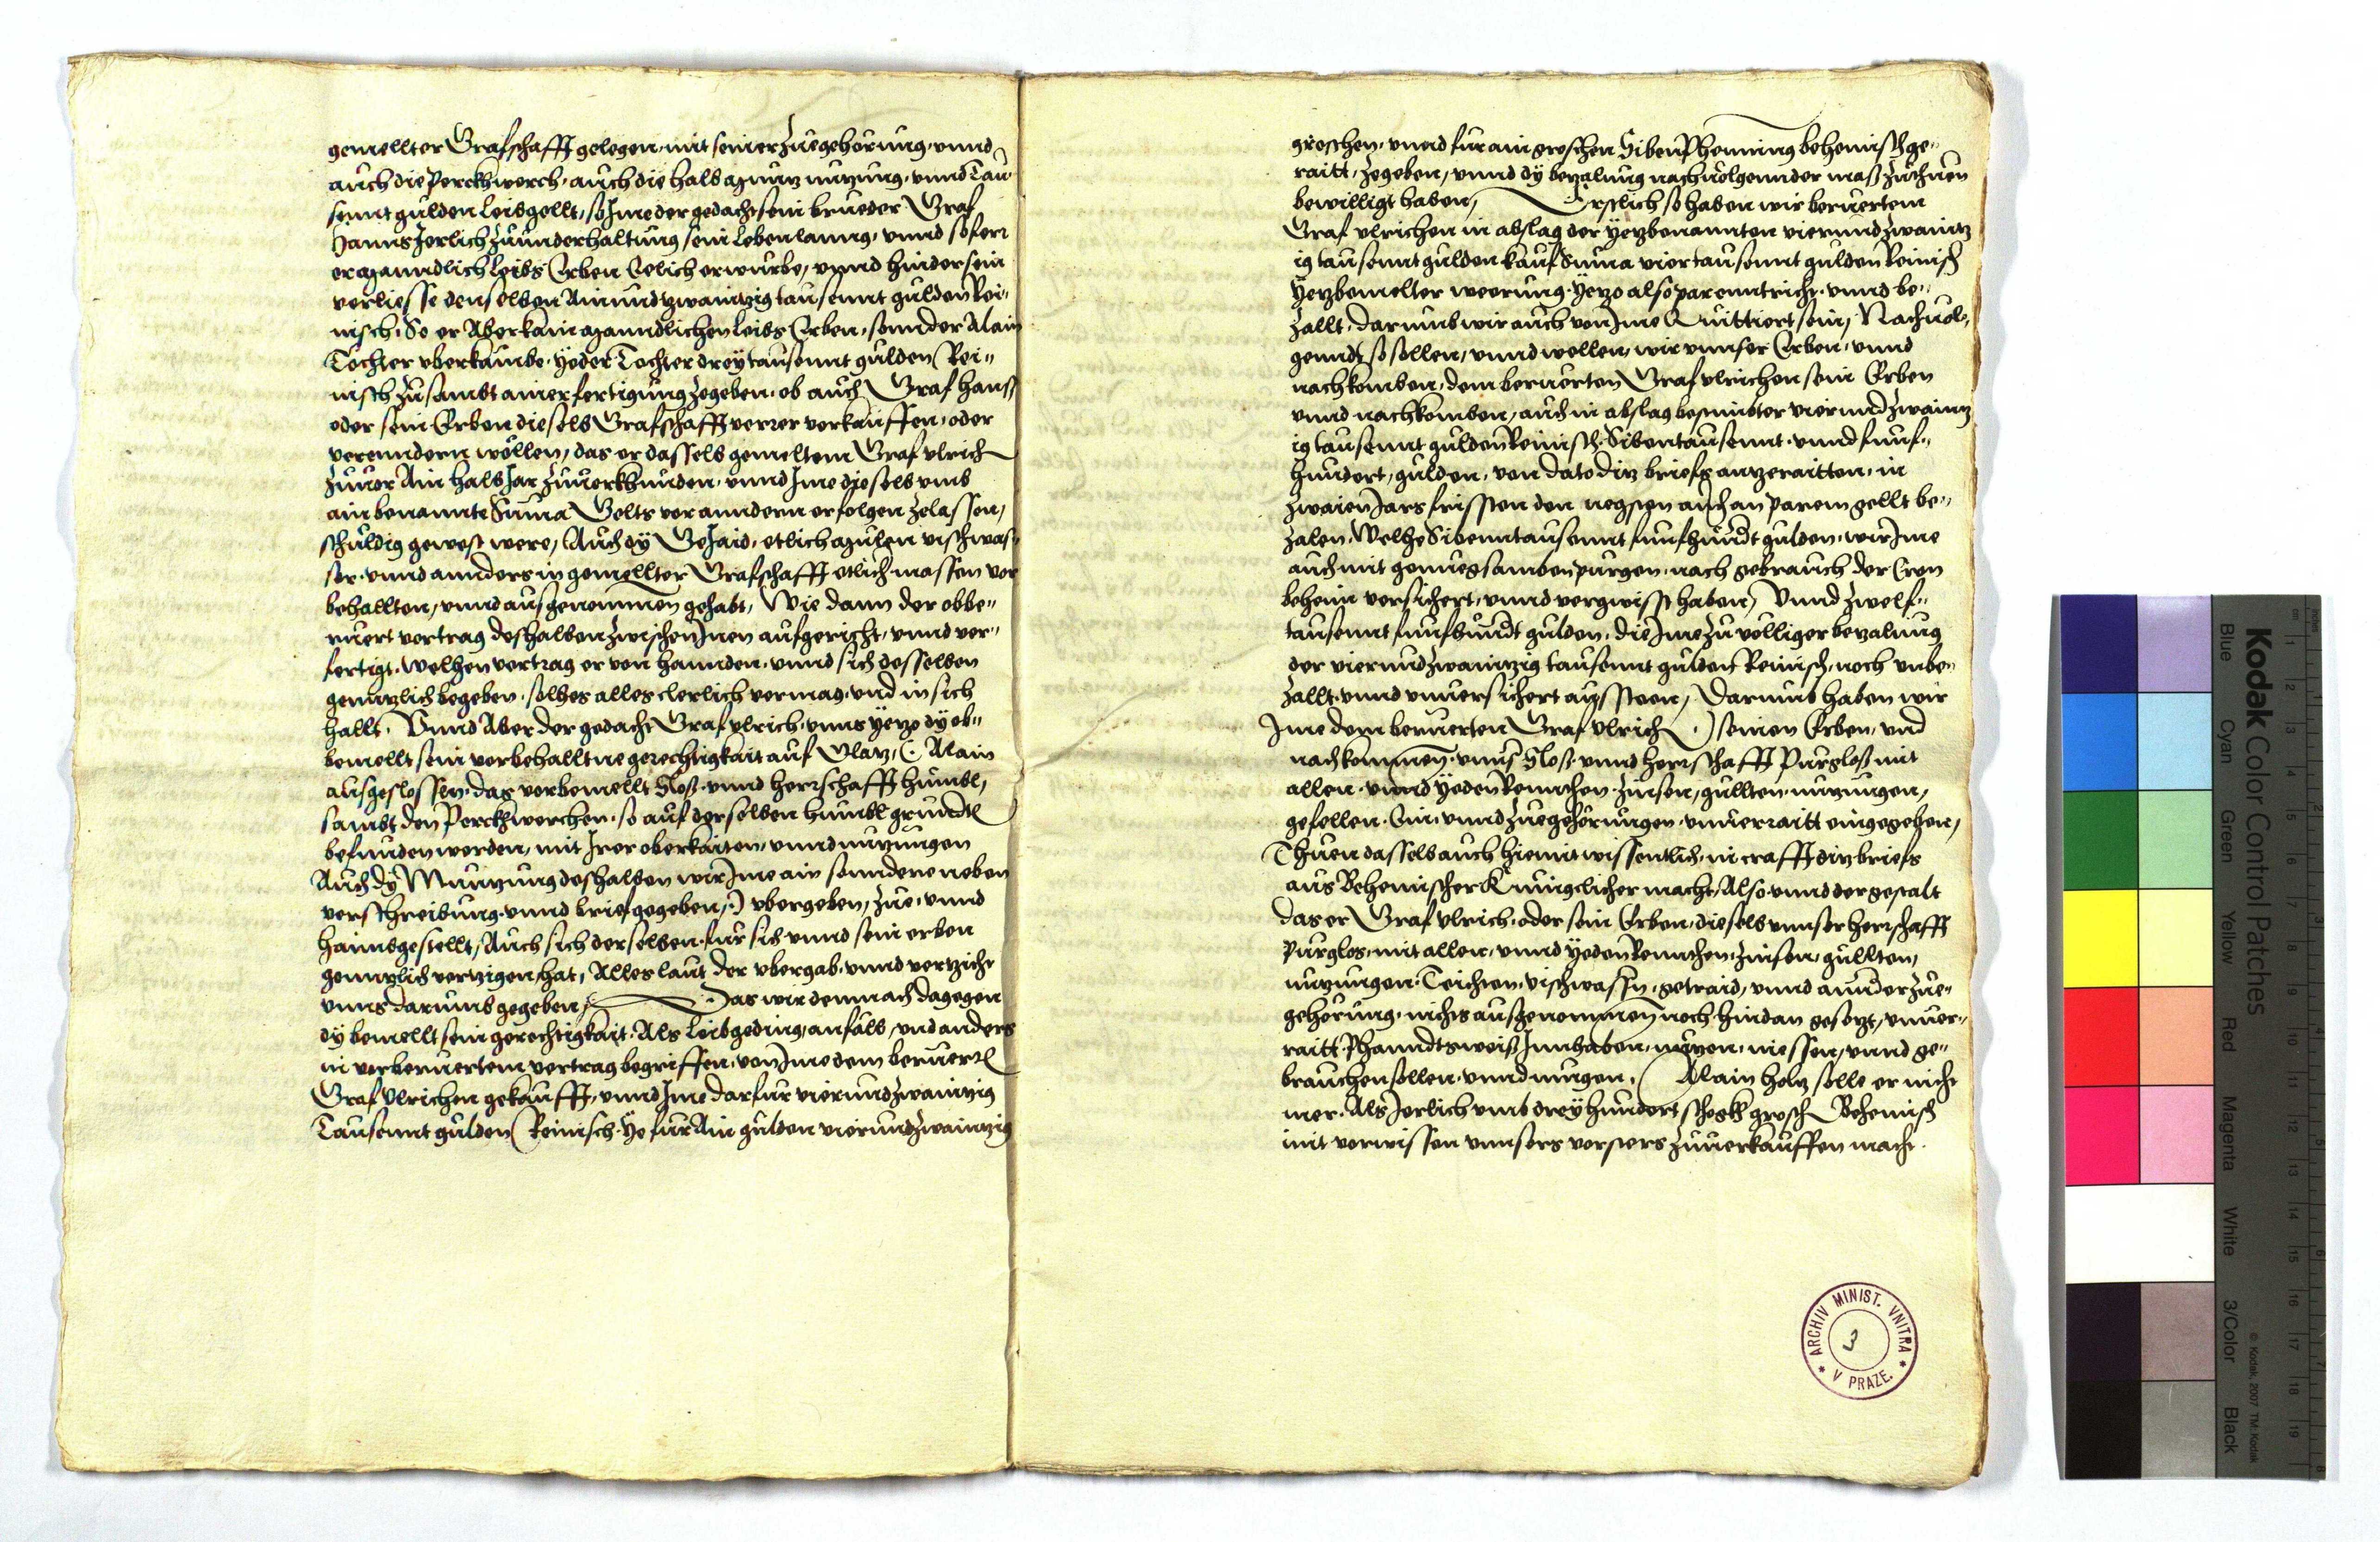 gemellter Grafschafft gelegen, mit seiner Zuegehorung, vnnd
auch die Perckhwerch, auch die halb Muntz nutzung, vnnd Tau
sennt gulden Leibgellt, so Ime der gedacht sein brueder Graf
Hanns Jerlich zu vnnderhaltung sein Lebenlanng, vnnd sofern
er Manndlich Leibs Erben Eelich erwurbe, vnnd hinder sein
verliesse denselben Ainundtzwaintzig tausennt gulden Rei„
nisch, So er Aber kain Manndlichen leibs Erben, sonnder Alain
Töchter vberkumbe, yeder Tochter dreÿ tausennt gulden Rei„
nisch zusambt ainer fertigung zegeben, ob auch Graf Hanss
oder sein Erben dieselb Grafschafft verrer verkauffen, oder
verenndern wöllen, das er dasselb gemeltem Graf Vlrich
zuuor Ain halb Jar zuuerkhunden, vnnd Ime dieselb vmb
ain benannte Suma Gelts vor anndern erfolgen zelassen,
schuldig gewest were, Auch dÿ Gejaid, etlich Mulen vischwas„
ser, vnnd annders in gemellter Grafschafft etlich massen vor
behallten, vnnd ausgenommen gehabt, Wie dann der obbe„
ruert vertrag deshalben zwischen Inen aufgericht, vnnd ver„
fertigt, welhen vertrag er von hannden, vnnd sich desselben
genntzlich begeben, solhes alles clerlich vermag, vnd in sich
hallt. Vnnd Aber der gedacht Graf Vlrich, vnns yetzo dÿ ob„
bemellt sein vorbehalltne gerechtigkait auf Glatz, (Alain
ausgeslossen, das vorbemellt Slos, vnnd herrschafft Humbl,
sambt den Perckhwerchen, so auf derselben Humbl grundt
befunden werden, mit Irer oberkaiten, vnnd nutzungen
Auch dÿ Munntzung deshalben wir Ime ain sonndere neben
verschreibung, vnnd brief gegeben,) vbergeben, zue, vnnd
haimbgestellt, Auch sich derselben fur sich vnnd sein erben
genntzlich vertzigen hat, Alles laut der vbergab, vnnd vertzicht
vnns darumb gegeben, Das wir demnach dagegen
dÿ bemellt sein gerechtigkait, Als Leibgeding, anfäll, vnd anders
in vorberuertem vertrag begriffen, von Ime dem beruertn
Graf Vlrichen gekaufft, vnnd Ime darfur vierundzwaintzig
Tausennt gulden Reinisch, Ye fur Ain gulden vierundzwaintzig
groschen, vnnd fur ain groschen Siben Phenning behemisch ge„
raitt, zegeben, vnnd dÿ betzalung nachuolgennder mass zuthuen
bewilligt haben, Erstlich so haben wir beruertem
Graf Vlrichen in abslag der yetzbenannten vierundzwaintz
ig tausennt gulden kauf Suma viertausennt gulden Reinisch
yetzbemelter weerung, yetzo also par enntricht, vnnd be„
zallt, darumb wir auch von Ime Quittiert sein, Nachuol„
gennds so sollen, vnnd wellen, wir vnnser Erben, vnnd
nachkomben, dem beruerten Graf Vlrichen sein Erben
vnnd nachkomben, auch in abslag bestimbter vierundzwaintz
ig tausennt gulden Reinisch, Sibentausennt, vnnd funf„
hundert, gulden, von dato ditz briefs antzeraitten, in
zwaien Jars fristen den negsten auch an parem gellt be„
zalen, Welhe Sibenntausennt funfhundt gulden, wir Ime
auch mit genuegsamben purgen, nach gebrauch der Cron
beheim versichert, vnnd vergwisst haben, Vnnd zwelf„
tausennt funfhundt gulden, die Ime zu volliger betzalung
der vierundzwaintzig tausennt gulden Reinisch, noch vnbe„
zallt, vnnd vnuersichert aussteen, Darumb haben wir
Ime dem beruerten Graf Vlrich seinen Erben, vnd
nachkommen, vnnser Slos, vnnd herrschafft Purglos mit
allen, vnnd yeden Renndten, zinsen, gullten, nutzungen,
gefellen, Ein, vnnd zuegehorungen, vnuerraitt eingegeben,
Thuen dasselb auch hiemit wissentlich, in crafft ditz briefs
aus Behemischer Kunigclicher macht, Also vnnd dergestalt
das er Graf Vlrich, oder sein Erben, dieselb vnnser herrschafft
Purglos, mit allen, vnnd yeden Renndten, zinsen, gullten,
nutzungen, Teichten, vischwassern, getraid, vnnd annder zue„
gehorung, nichts ausgenommen noch hindan gesetzt, vnuer„
raitt, Phanndtsweis Innhaben, nutzen, niessen, vnnd ge„
brauchen sollen, vnnd mugen. Alain holtz solle er nicht
mer, Als Jerlich vmb dreÿhundert schockh grosch Behemisch
mit vorwissen vnnsers vorsters zuuerkauffen macht.
ARCHIV MINIST. VNITRA
V PRAZE.
3
Kodak Color Control Patches
© Kodak, 2007 TM: Kodak
Blue Cyan Green Yellow Red Magenta White 3/Color Black